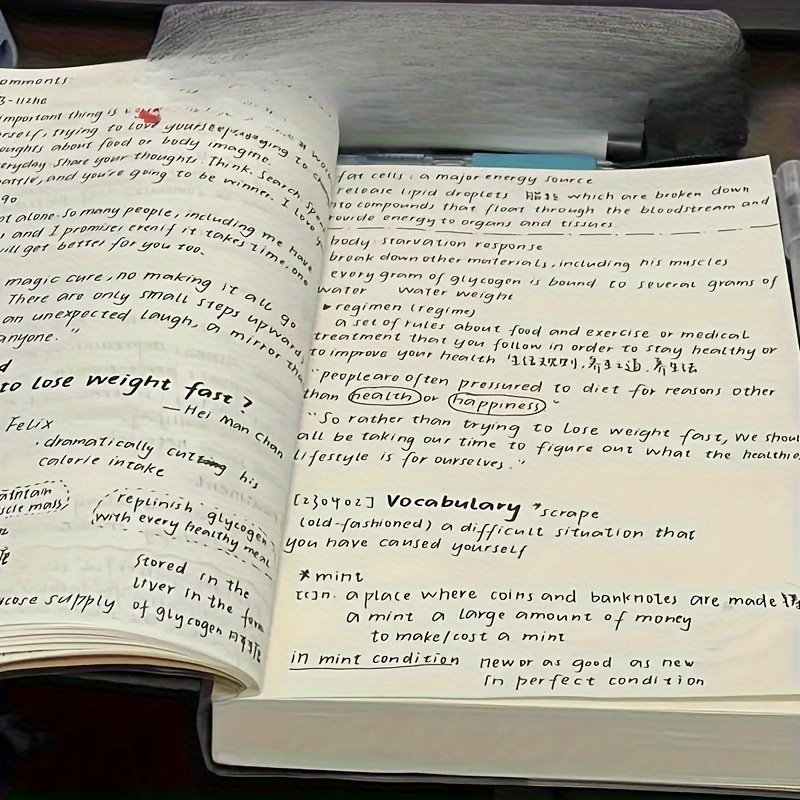 omments
important thing is
rself, trying to love yourself
oughts about food or body imagine.
everyday. Share your thoughts. Think. Search.
battle, and you're going to be winner. I love
go
ot alone. So many people, including me have
s and I promise: even if it takes time, one
will get better for you too.
magic cure, no making it all go
There are only small steps upward,
an unexpected laugh, a mirror tha
anyone."
d
to lose weight fast?
— Hei Man Chan
Felix
. dramatically cutting his
calorie intake
maintain
scle mass)
replinish glycogen
with every healthy meal
stored in the
liver in the form
ucose supply of glycogen
fat cells: a major energy source
release lipid droplets which are broken down
into compounds that float through the bloodstream and
rovide energy to organs and tissues.
body starvation response
break down other materials, including his muscles
every gram of glycogen is bound to several grams of
water water weight
regimen (regime)
a set of rules about food and exercise or medical
treatment that you follow in order to stay healthy or
to improve your health 生活规则,养生之道,养生法
"people are often pressured to diet for reasons other
than health or happiness"
"So rather than trying to lose weight fast, we shoul
all be taking our time to figure out what the healthie
lifestyle is for ourselves."
[230402] Vocabulary *scrape
(old-fashioned) a difficult situation that
you have caused yourself
*mint
[C]n. a place where coins and banknotes are made
a mint a large amount of money
to make/cost a mint
in mint condition new or as good as new
in perfect condition